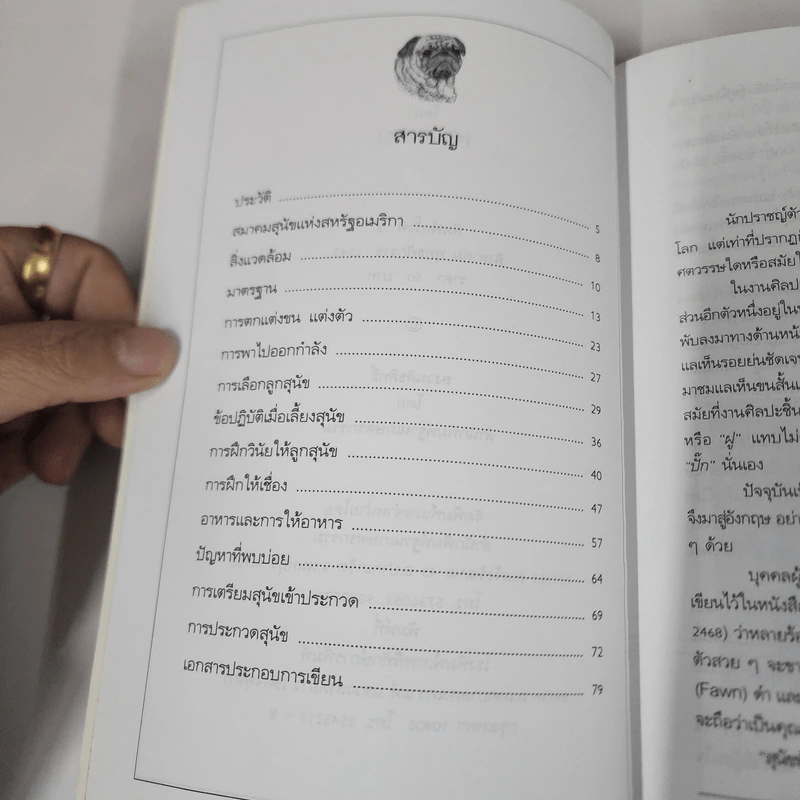 สารบัญ
ประวัติ 5
สมาคมสุนัขแห่งสหรัฐอเมริกา 8
สิ่งแวดล้อม 10
มาตรฐาน 13
การตกแต่งขน แต่งตัว 23
การพาไปออกกำลัง 27
การเลือกลูกสุนัข 29
ข้อปฏิบัติเมื่อเลี้ยงสุนัข 36
การฝึกวินัยให้ลูกสุนัข 40
การฝึกให้เชื่อง 47
อาหารและการให้อาหาร 57
ปัญหาที่พบบ่อย 64
การเตรียมสุนัขเข้าประกวด 69
การประกวดสุนัข 72
เอกสารประกอบการเขียน 79
นักปราชญ์
โลก แต่เท่าที่ปรากฏ
ศตวรรษใดหรือสมัยใ
ในงานศิลป
ส่วนอีกตัวหนึ่งอยู่ใน
พับลงมาทางด้านหน้
แลเห็นรอยย่นชัดเจ
มาชมแลเห็นขนสั้น
สมัยที่งานศิลปะชิ้น
หรือ “ฝู” แทบไม่
“ปั๊ก” นั่นเอง
ปัจจุบัน
จึงมาสู่อังกฤษ อย่า
ๆ ด้วย
บุคคลผู้
เขียนไว้ในหนังสือ
2468) ว่าหลายร้อ
ตัวสวย ๆ จะขา
(Fawn) ดำ และ
จะถือว่าเป็นคุณ